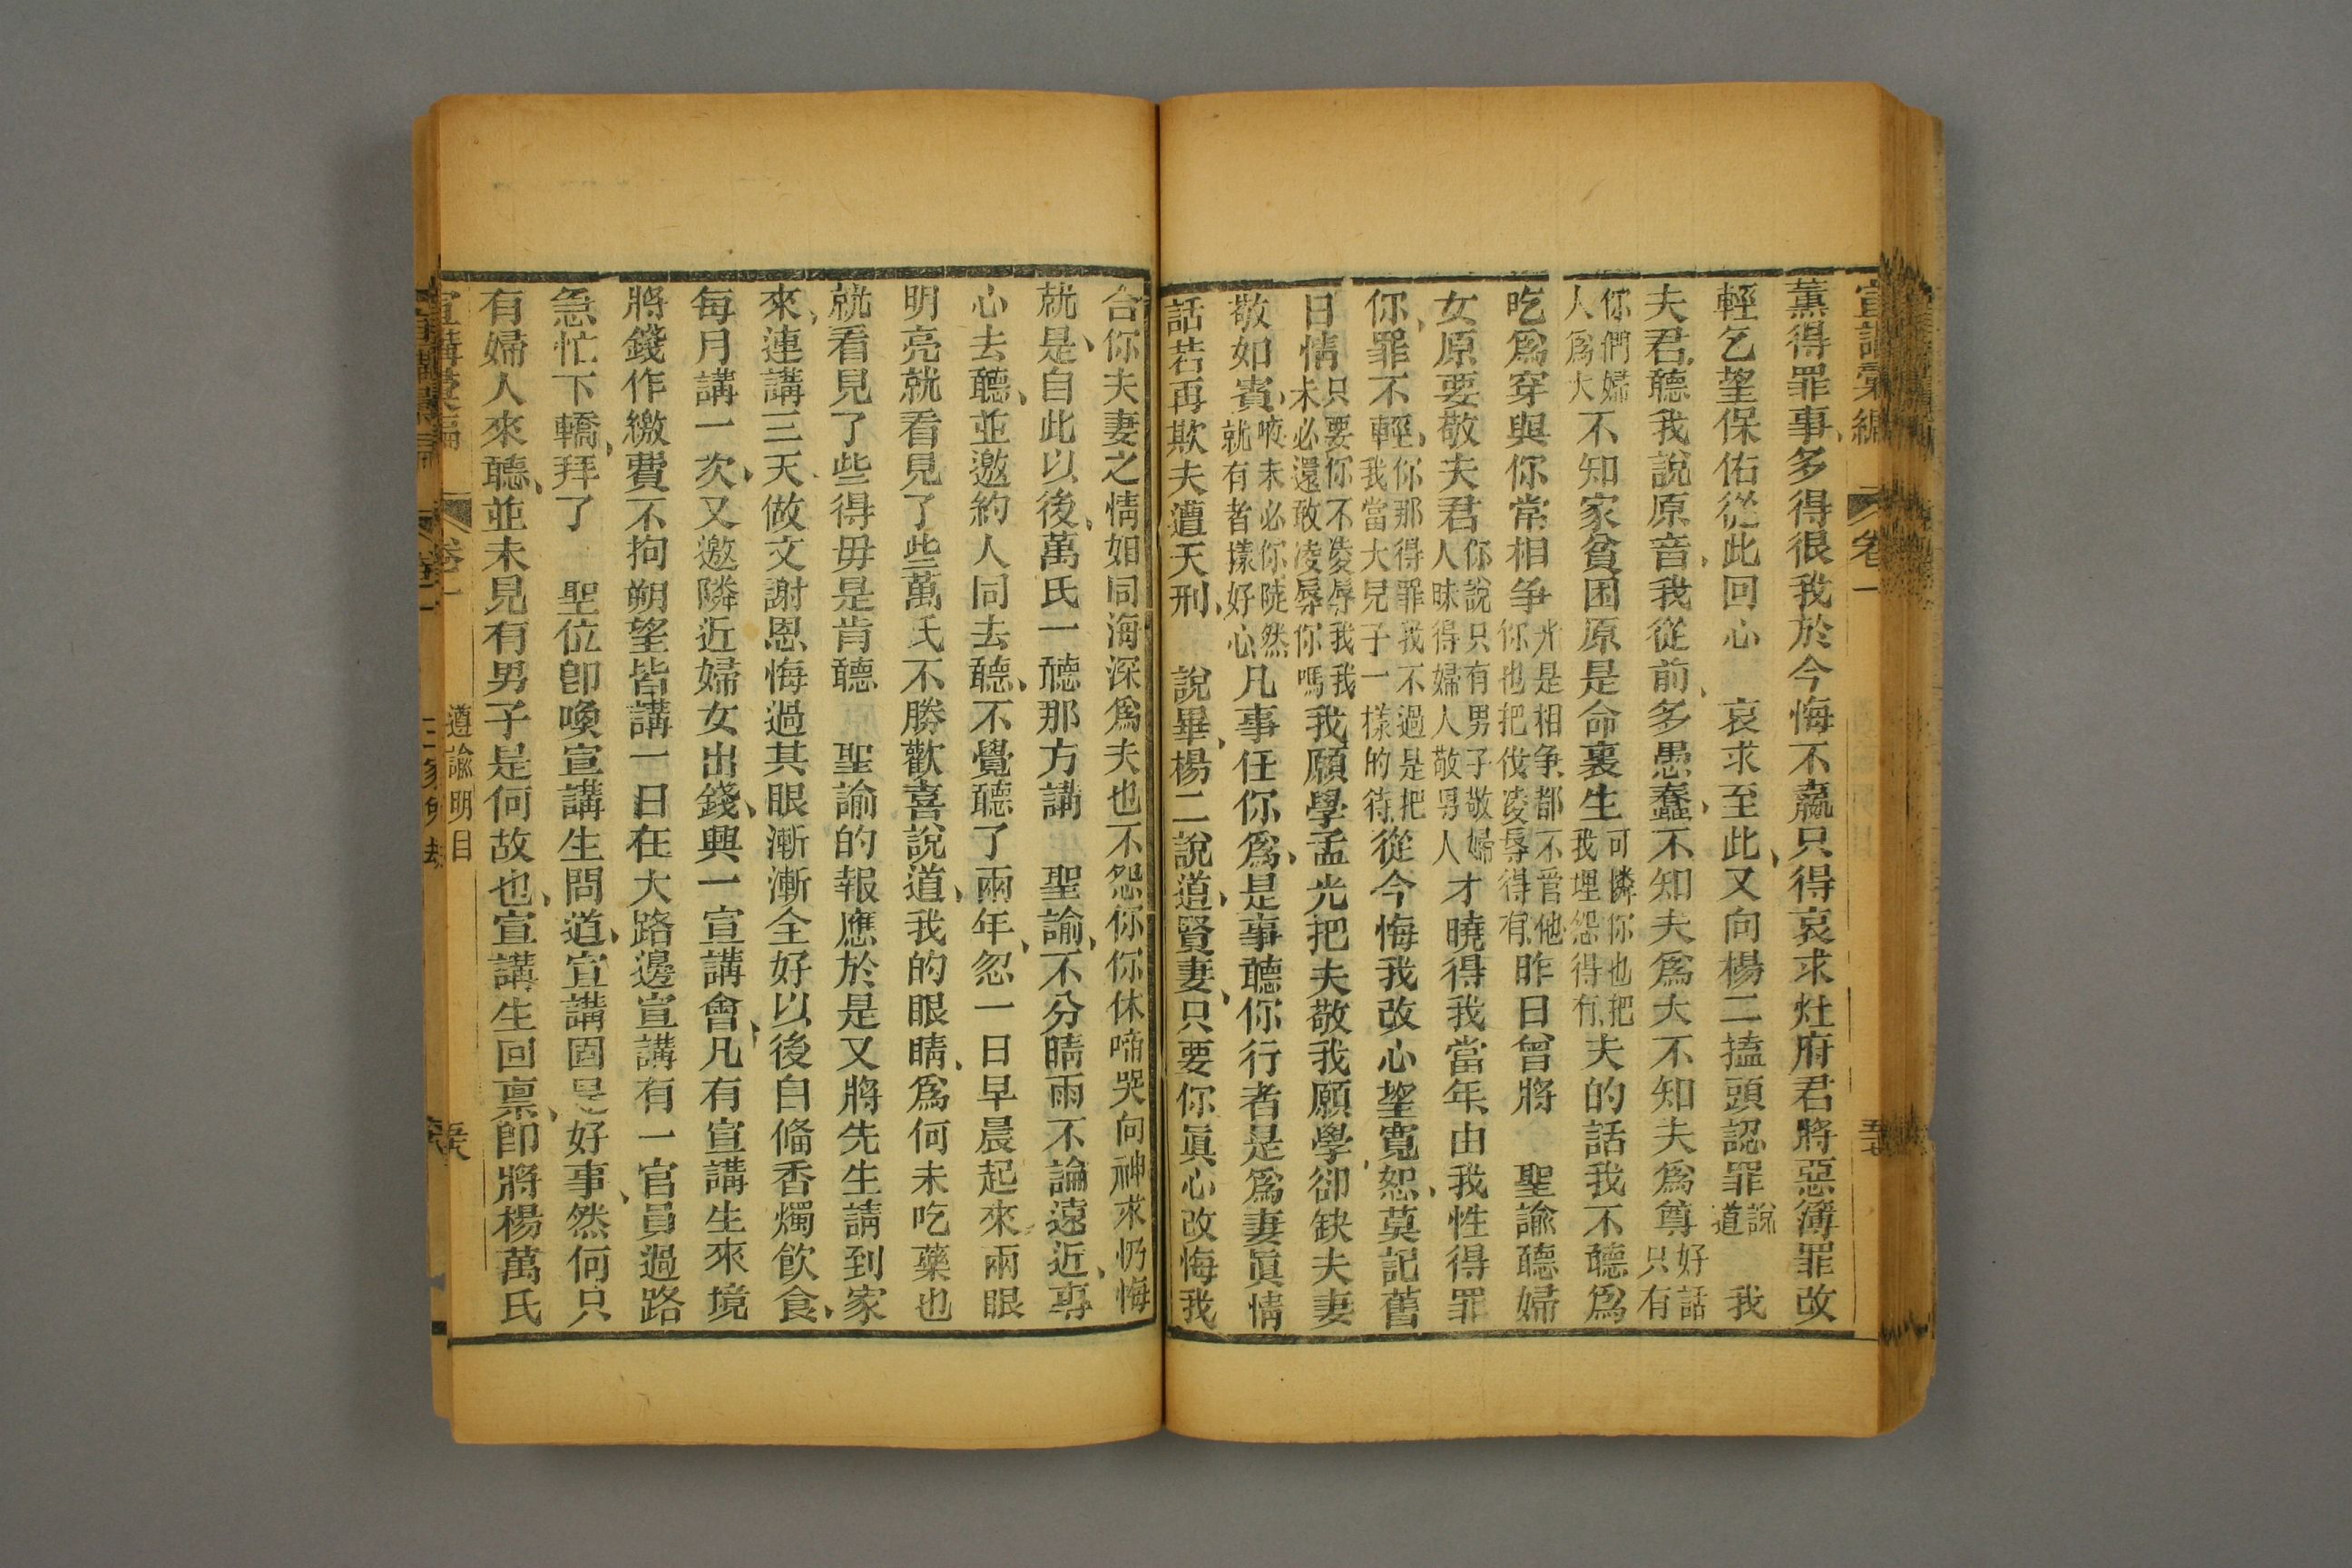 宣講彙編 卷一
薰得罪事、多得很我於今悔不羸只得哀求灶府君將惡簿罪改
輕乞望保佑從此回心　哀求至此、又向楊二搕頭認罪說道　我
夫君聽我說原音、我從前、多愚蠢、不知夫爲大不知夫爲尊好話只有
你們婦人爲大不知家貧困原是命裏生可憐你也把我埋怨得有夫的話我不聽爲
吃爲穿與你常相争光是相争、都不管他你也把伐凌辱得有昨日曾將　聖諭聽婦
女原要敬夫君你說只有男子敬婦人昧得婦人敬男人才曉得我當年、由我性得罪
你、罪不輕、你那得罪我不過是把我當大兒子一樣的待從今悔我改心望寬恕、莫記舊
日情只要你不凌辱我我未必還敢凌辱你嗎我願學孟光把夫敬我願學郤缺夫妻
敬如賓、嗷未必你陡然就有者㨾好心凡事任你爲、是事聽你行者是爲妻眞情
話若再欺夫遭天刑、　說畢、楊二說道、賢妻、只要你眞心改悔我
合你夫妻之情如同海深爲夫也不怨你你休啼哭向神求仍悔
就是、自此以後、萬氏一聽那方講　聖諭、不分晴雨不論遠近、專
心去聽、並邀約人同去聽、不覺聽了兩年、忽一日早晨起來兩眼
明亮就看見了些萬氏不勝歡喜說道、我的眼睛、爲何未吃藥也
就看見了些得毋是肯聽　聖諭的報應於是又將先生請到家
來、連講三天做文謝恩悔過其眼漸漸全好以後自俻香燭飲食、
每月講一次、又邀隣近婦女出錢、興一宣講會、凡有宣講生來境
將錢作繳費不拘朔望皆講一日在大路邊宣講有一官員過路
急忙下轎、拜了　聖位卽喚宣講生問道、宣講固是好事、然何只
有婦人來聽、並未見有男子是何故也、宣講生回禀、卽將楊萬氏
宣講彙編 卷一 遵諭明目